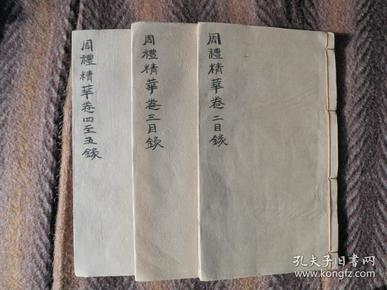 周禮精華卷二目錄
周禮精華卷三目錄
周禮精華卷四至五錄
孔夫子旧书网
www.kongfz.com